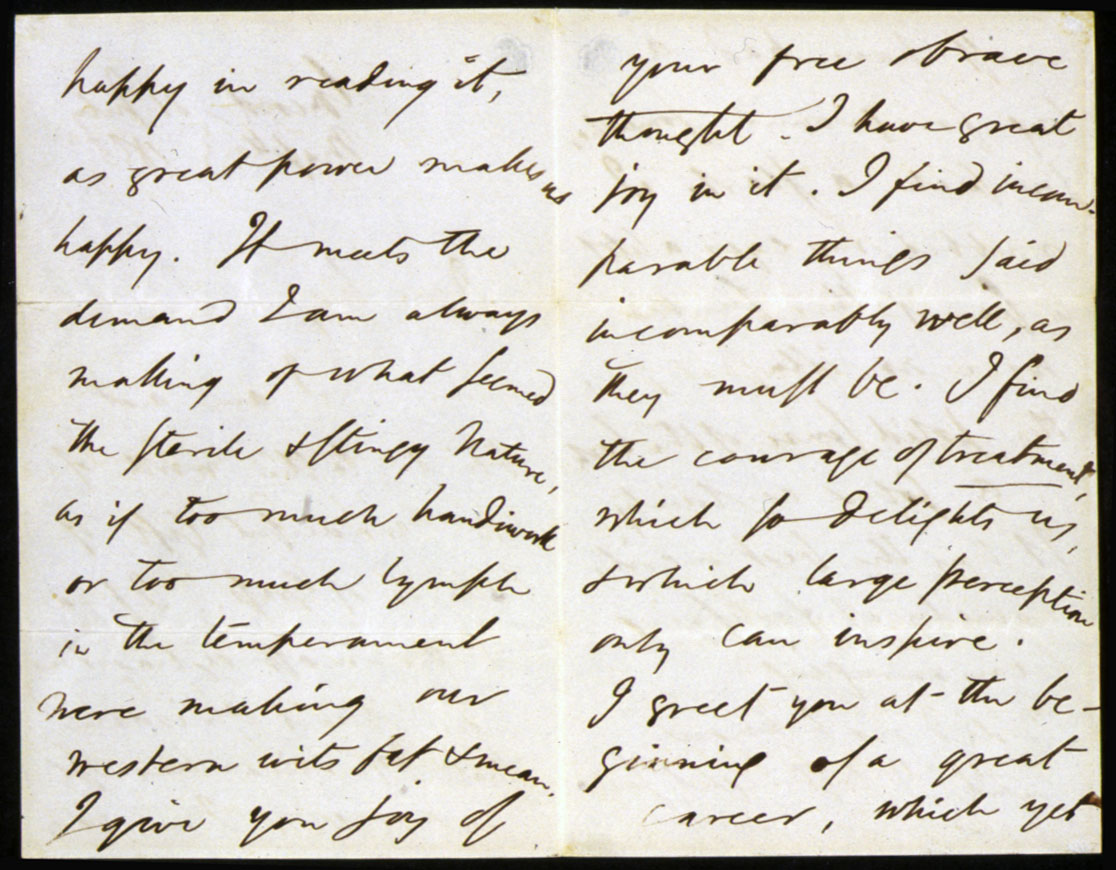 happy in reading it,
as great power makes us
happy. It meets the
demand I am always
making of what seemed
the sterile & stingy Nature,
as if too much handiwork
or too much lymph
in the temperament
were making our
western wits fat & mean.
I give you joy of
your free & brave
thought. I have great
joy in it. I find incom-
parable things said
incomparably well, as
they must be. I find
the courage of treatment,
which so delights us,
& which large perception
only can inspire.
I greet you at the be-
ginning of a great
career, which yet